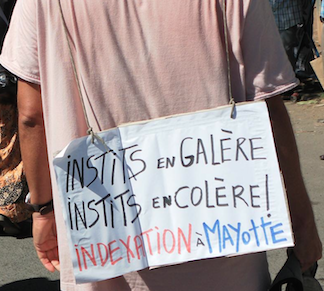 INSTITS EN GALÈRE
INSTITS EN COLÈRE!
INDEXATION À MAYOTTE